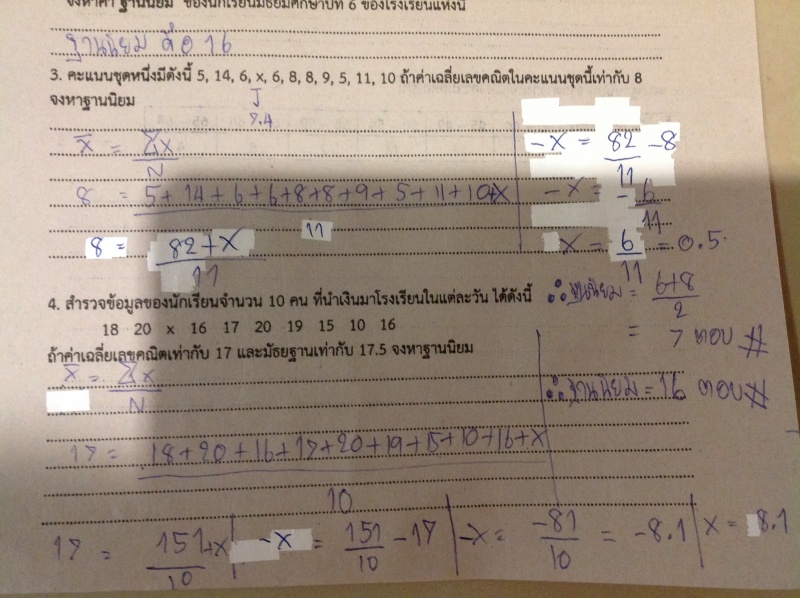 จงหาค่า ฐานนิยม ของนักเรียนมัธยมศึกษาปีที่ 6 ของโรงเรียนแห่งนี้
ฐานนิยม คือ 16
3. คะแนนชุดหนึ่งมีดังนี้ 5, 14, 6, x, 6, 8, 8, 9, 5, 11, 10 ถ้าค่าเฉลี่ยเลขคณิตในคะแนนชุดนี้เท่ากับ 8
จงหาฐานนิยม
7.4
x̄ = Σx/N
8 = 5+14+6+6+8+8+9+5+11+10+x
11
8 = 82+x/11
-x = 82/11 -8
-x = -6/11
x = 6/11 = 0.5
∴ ฐานนิยม = 6+8/2
= 7 ตอบ #
4. สำรวจข้อมูลของนักเรียนจำนวน 10 คน ที่นำเงินมาโรงเรียนในแต่ละวัน ได้ดังนี้
18 20 x 16 17 20 19 15 10 16
ถ้าค่าเฉลี่ยเลขคณิตเท่ากับ 17 และมัธยฐานเท่ากับ 17.5 จงหาฐานนิยม
x̄ = Σx/N
∴ ฐานนิยม = 16 ตอบ #
17 = 18+20+16+17+20+19+15+10+16+x
10
17 = 151+x/10
-x = 151/10 - 17
-x = -81/10 = -8.1
x = 8.1